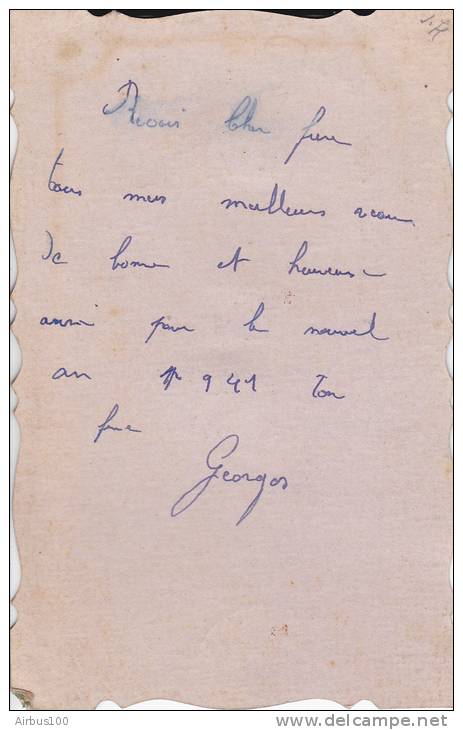 Recois Cher frere
tous mes meilleurs veaux
de bonne et heureuse
anné pour le nouvel
an 1941 Ton
frere
Georges
Airbus100
www.delcampe.net